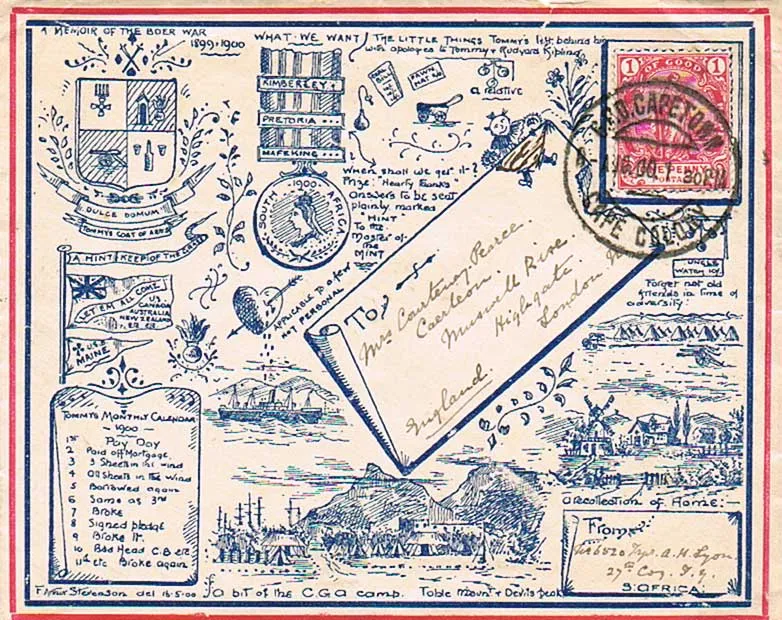 A MEMOIR OF THE BOER WAR
1899-1900
WHAT WE WANT
THE LITTLE THINGS TOMMY'S left behind him
with apologies to Tommy & Rudyard Kipling
KIMBERLEY
PRETORIA
MAFEKING
PAWN
a relative
SOUTH 1900 AFRICA
When shall we get it?
Prize: "Hearty Thanks"
answers to be sent
plainly marked
"MINT"
To the
Master of
the
MINT
DULCE DOMUM
TOMMY'S COAT OF ARMS
A MINT KEEPIOF THE CRISIS
LET EM ALL COME
US
CANADA
AUSTRALIA
NEW ZEALAND
U.S.S
MAINE
APPLICABLE TO A FEW
NOT PERSONAL
1 OF GOOD 1
ONE PENNY
POSTAGE
G.P.O. CAPETOWN
CAPE COLONY
To
Mrs Courtenay Pearce
Caerleon.
Muswell Rise
Highgate.
London N
England.
UNCLE
WATCH 10/-
Forget not old
friends in time of
adversity:
TOMMY'S MONTHLY CALENDAR
1900
1st Pay Day
2 Paid off Mortgage.
3 3 Sheets in the wind
4 4 Sheets in the Wind
5 Borrowed again
6 Same as 3rd
7 Broke
8 Signed pledge
9 Broke It.
10 Bad Head C.B etc
11th etc Broke again
a recollection of Home:-
From:
Tpr. A. H. Lyon.
27th Coy. I.Y.
S. AFRICA:
Stevenson del 16-5-00
a bit of the C.G.A camp. Table mount & Devils peak